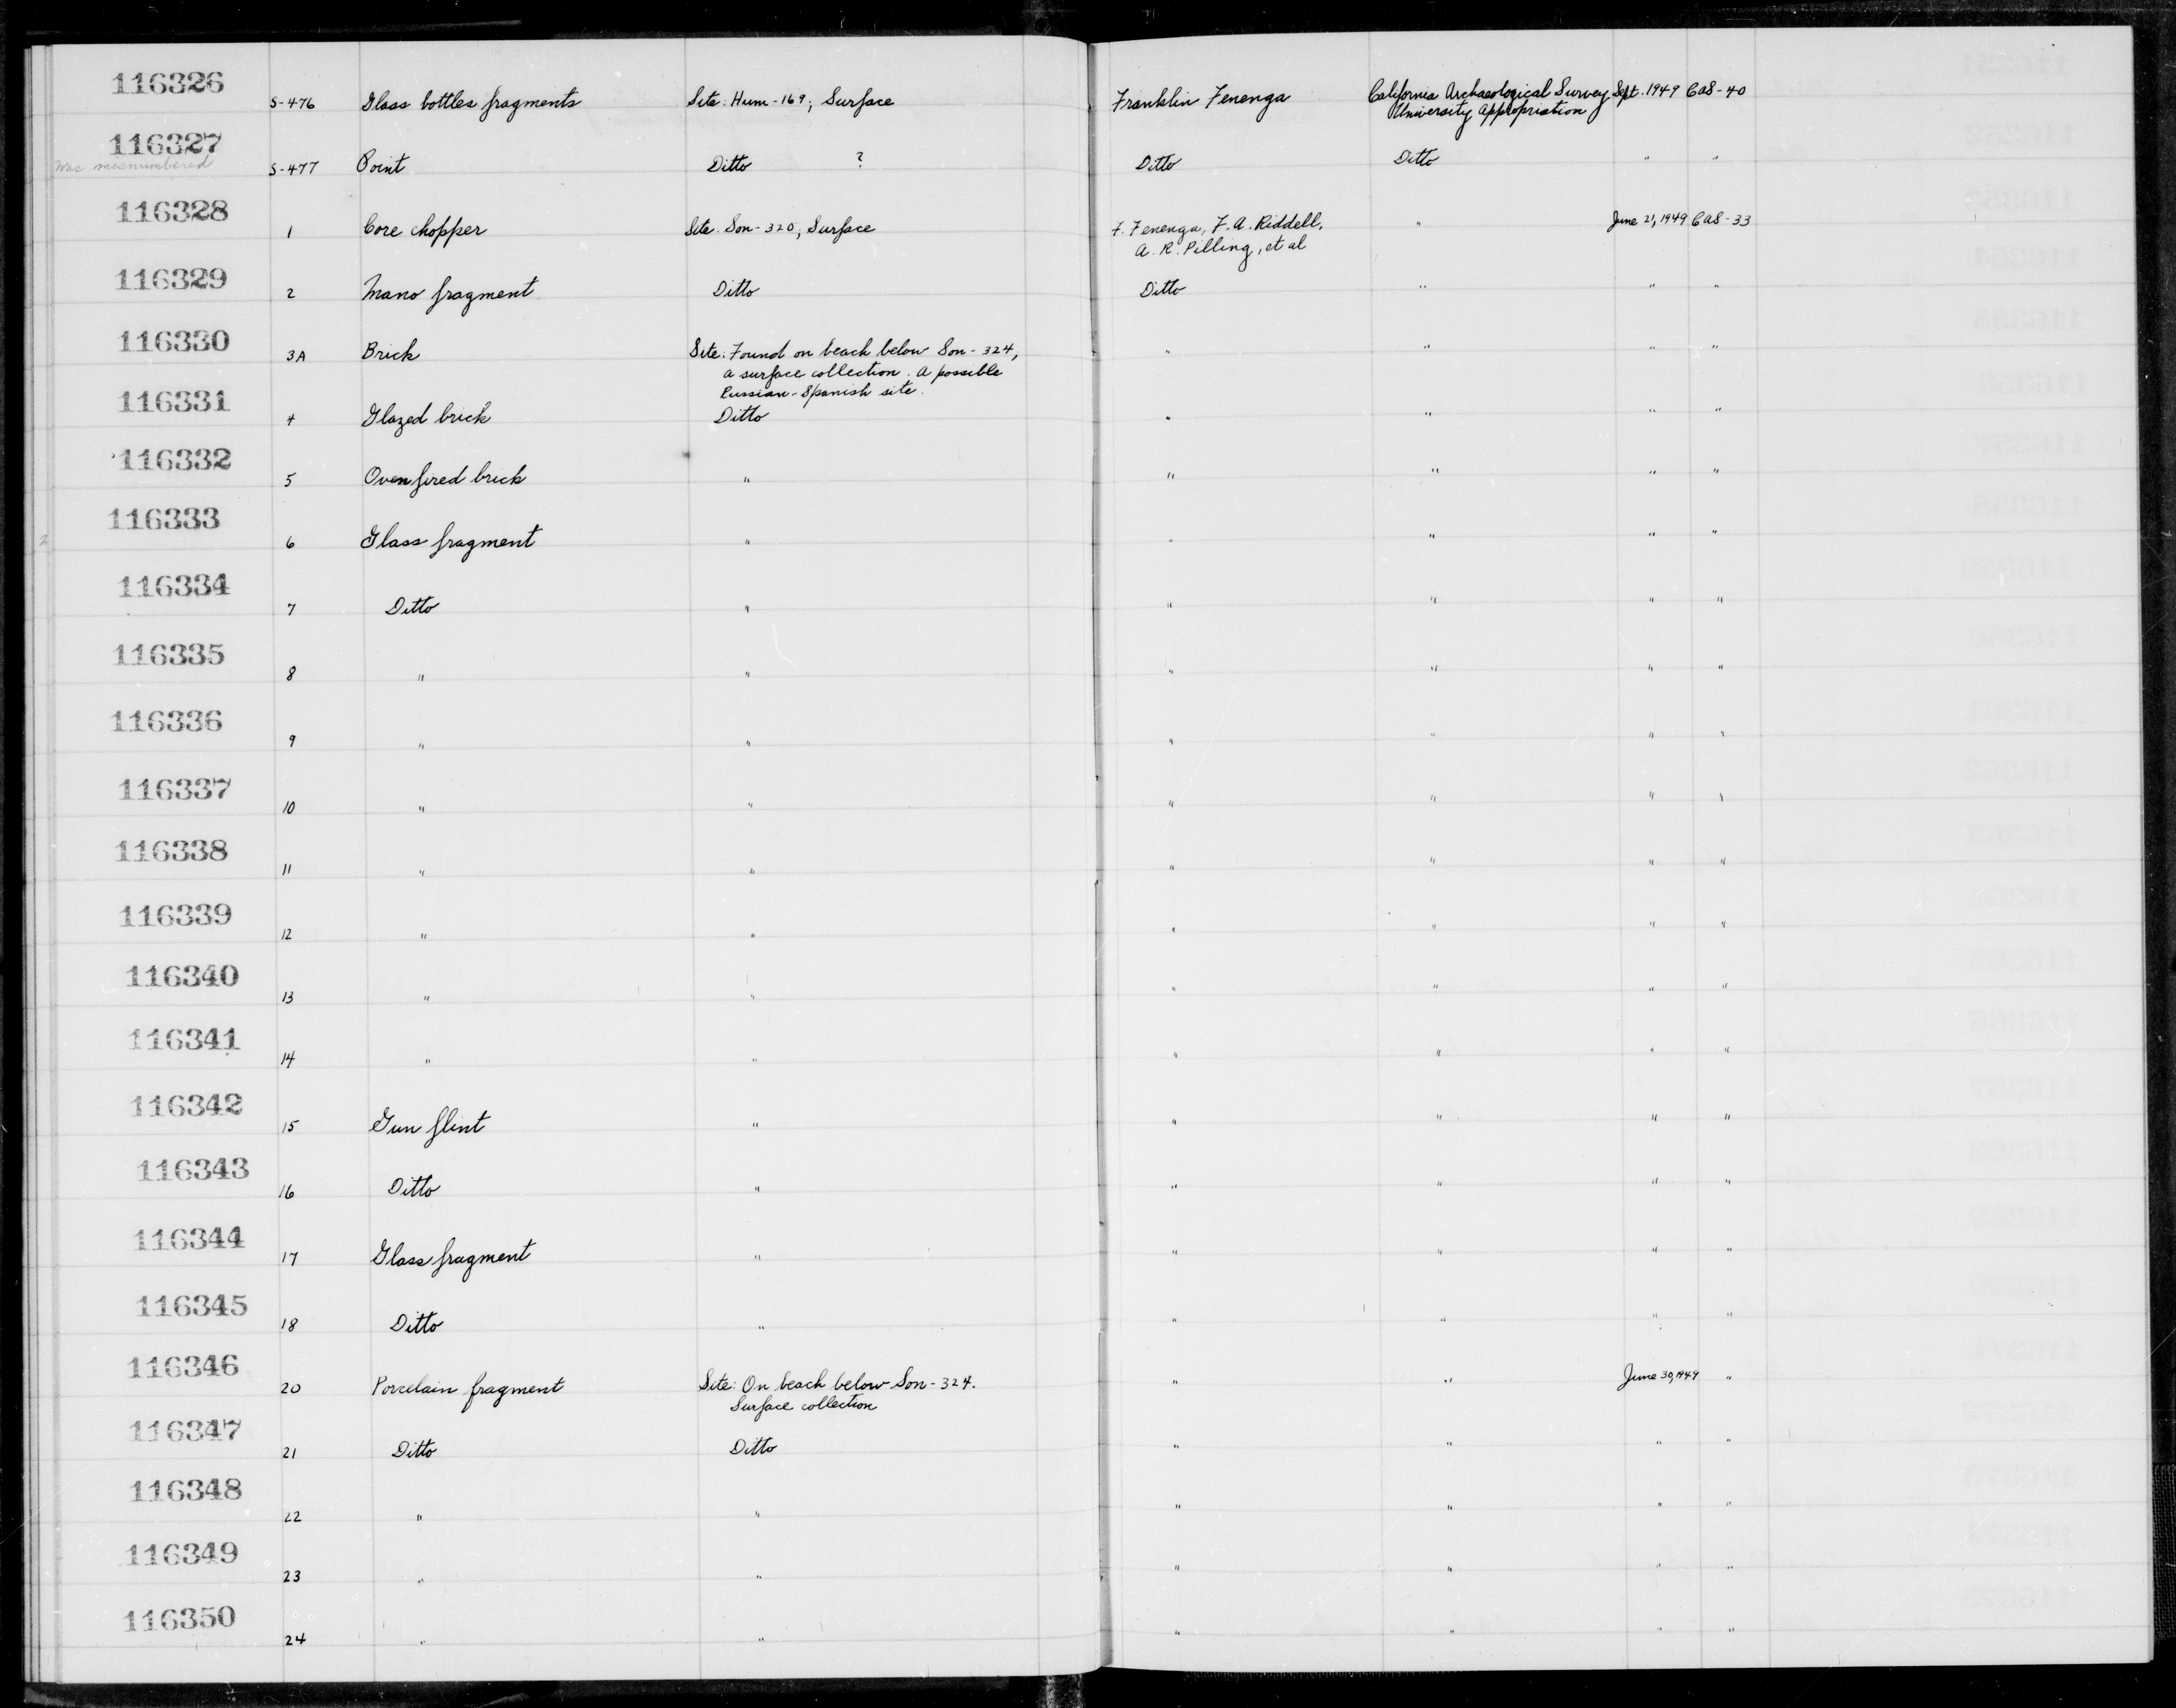 116326 S-476 Glass bottles fragments Site: Hum-169; Surface Franklin Fenenga California Archaeological Survey Sept. 1949 CAS-40
University Appropriation
116327
Was misnumbered S-477 Point Ditto ? Ditto Ditto " "
116328 1 Core chopper Site: Son-320; Surface F. Fenenga, F. A. Riddell, " June 21, 1949 CAS-33
A. R. Pilling, et al
116329 2 Mano fragment Ditto Ditto " " "
116330 3A Brick Site: Found on beach below Son-324, " " " "
a surface collection. A possible
Russian-Spanish site.
116331 4 Glazed brick Ditto " " " "
116332 5 Oven fired brick " " " " "
116333 6 Glass fragment " " " " "
116334 7 Ditto " " " " "
116335 8 " " " " " "
116336 9 " " " " " "
116337 10 " " " " " "
116338 11 " " " " " "
116339 12 " " " " " "
116340 13 " " " " " "
116341 14 " " " " " "
116342 15 Gun flint " " " " "
116343 16 Ditto " " " " "
116344 17 Glass fragment " " " " "
116345 18 Ditto " " " " "
116346 20 Porcelain fragment Site: On beach below Son-324. " " June 30, 1949 "
Surface collection
116347 21 Ditto Ditto " " " "
116348 22 " " " " " "
116349 23 " " " " " "
116350 24 " " " " " "